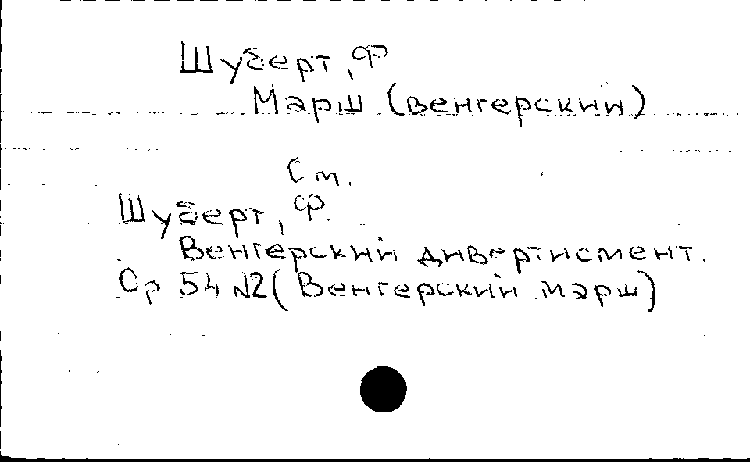 Шуберт, Ф
Марш (венгерский)
См.
Шуберт, Ф.
Венгерский дивертисмент.
Ор 54 №2 (Венгерский марш)